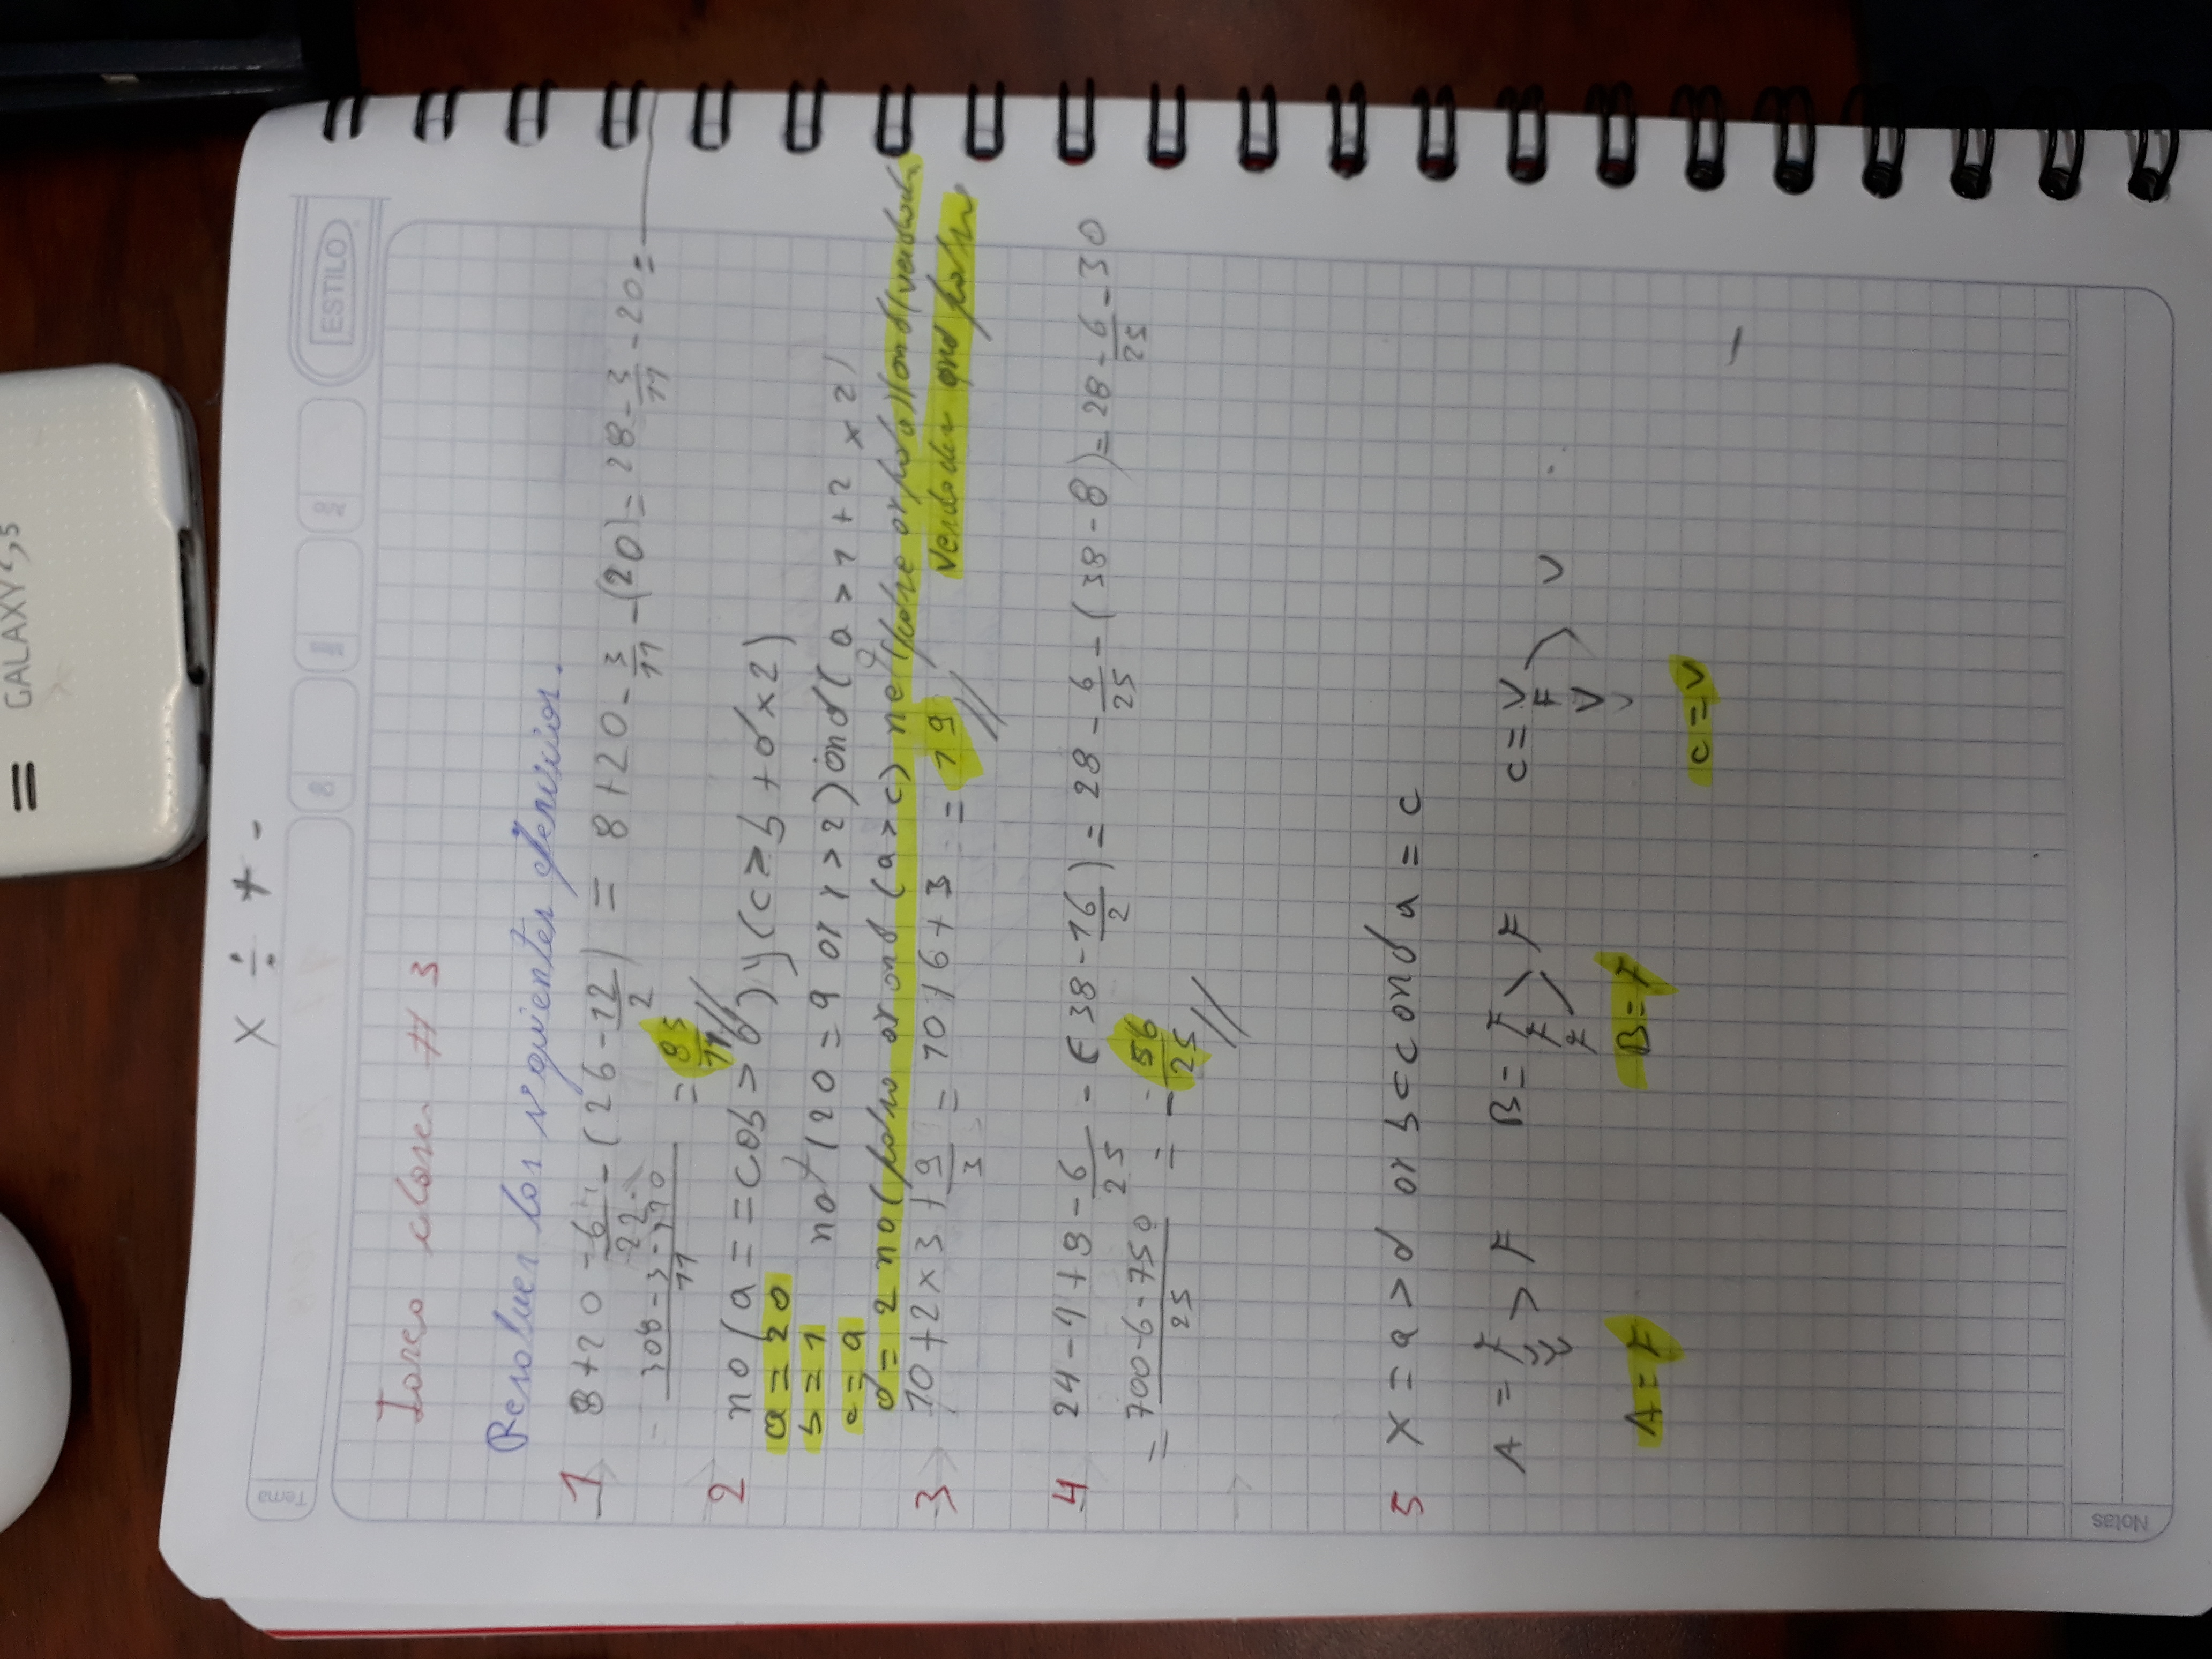 GALAXY S5
× ÷ + -
Tema
Día
Mes
Año
ESTILO
Tarea clase # 3
Resolver los siguientes ejercicios.
1 8+20-6/22-(26-12/2) = 8+20-3/11-(20)=28-3/11-20=
308-3-220/11 = 85/11
2 no(a==c o b > d) y (c > b + d × 2)
a=20
b=1 not (20=9 or 1>2) and (a > 1 + 2 × 2)
c=9
d=2 no(falso or and (a > c) not (falso or falso) and (verdadero
3 10+2×3+9/3 = 10+6+3 = 19 Verdader and falso
4 24-4+8-6/25-(38-16/2) = 28-6/25-(38-8)=28-6/25-30
= 700-6-750/25 = -56/25
5 x = a > d or b < c and a = c
A = F > F B = F F C = V
V F F V
V F V
A = F B = F
C = V
Notas